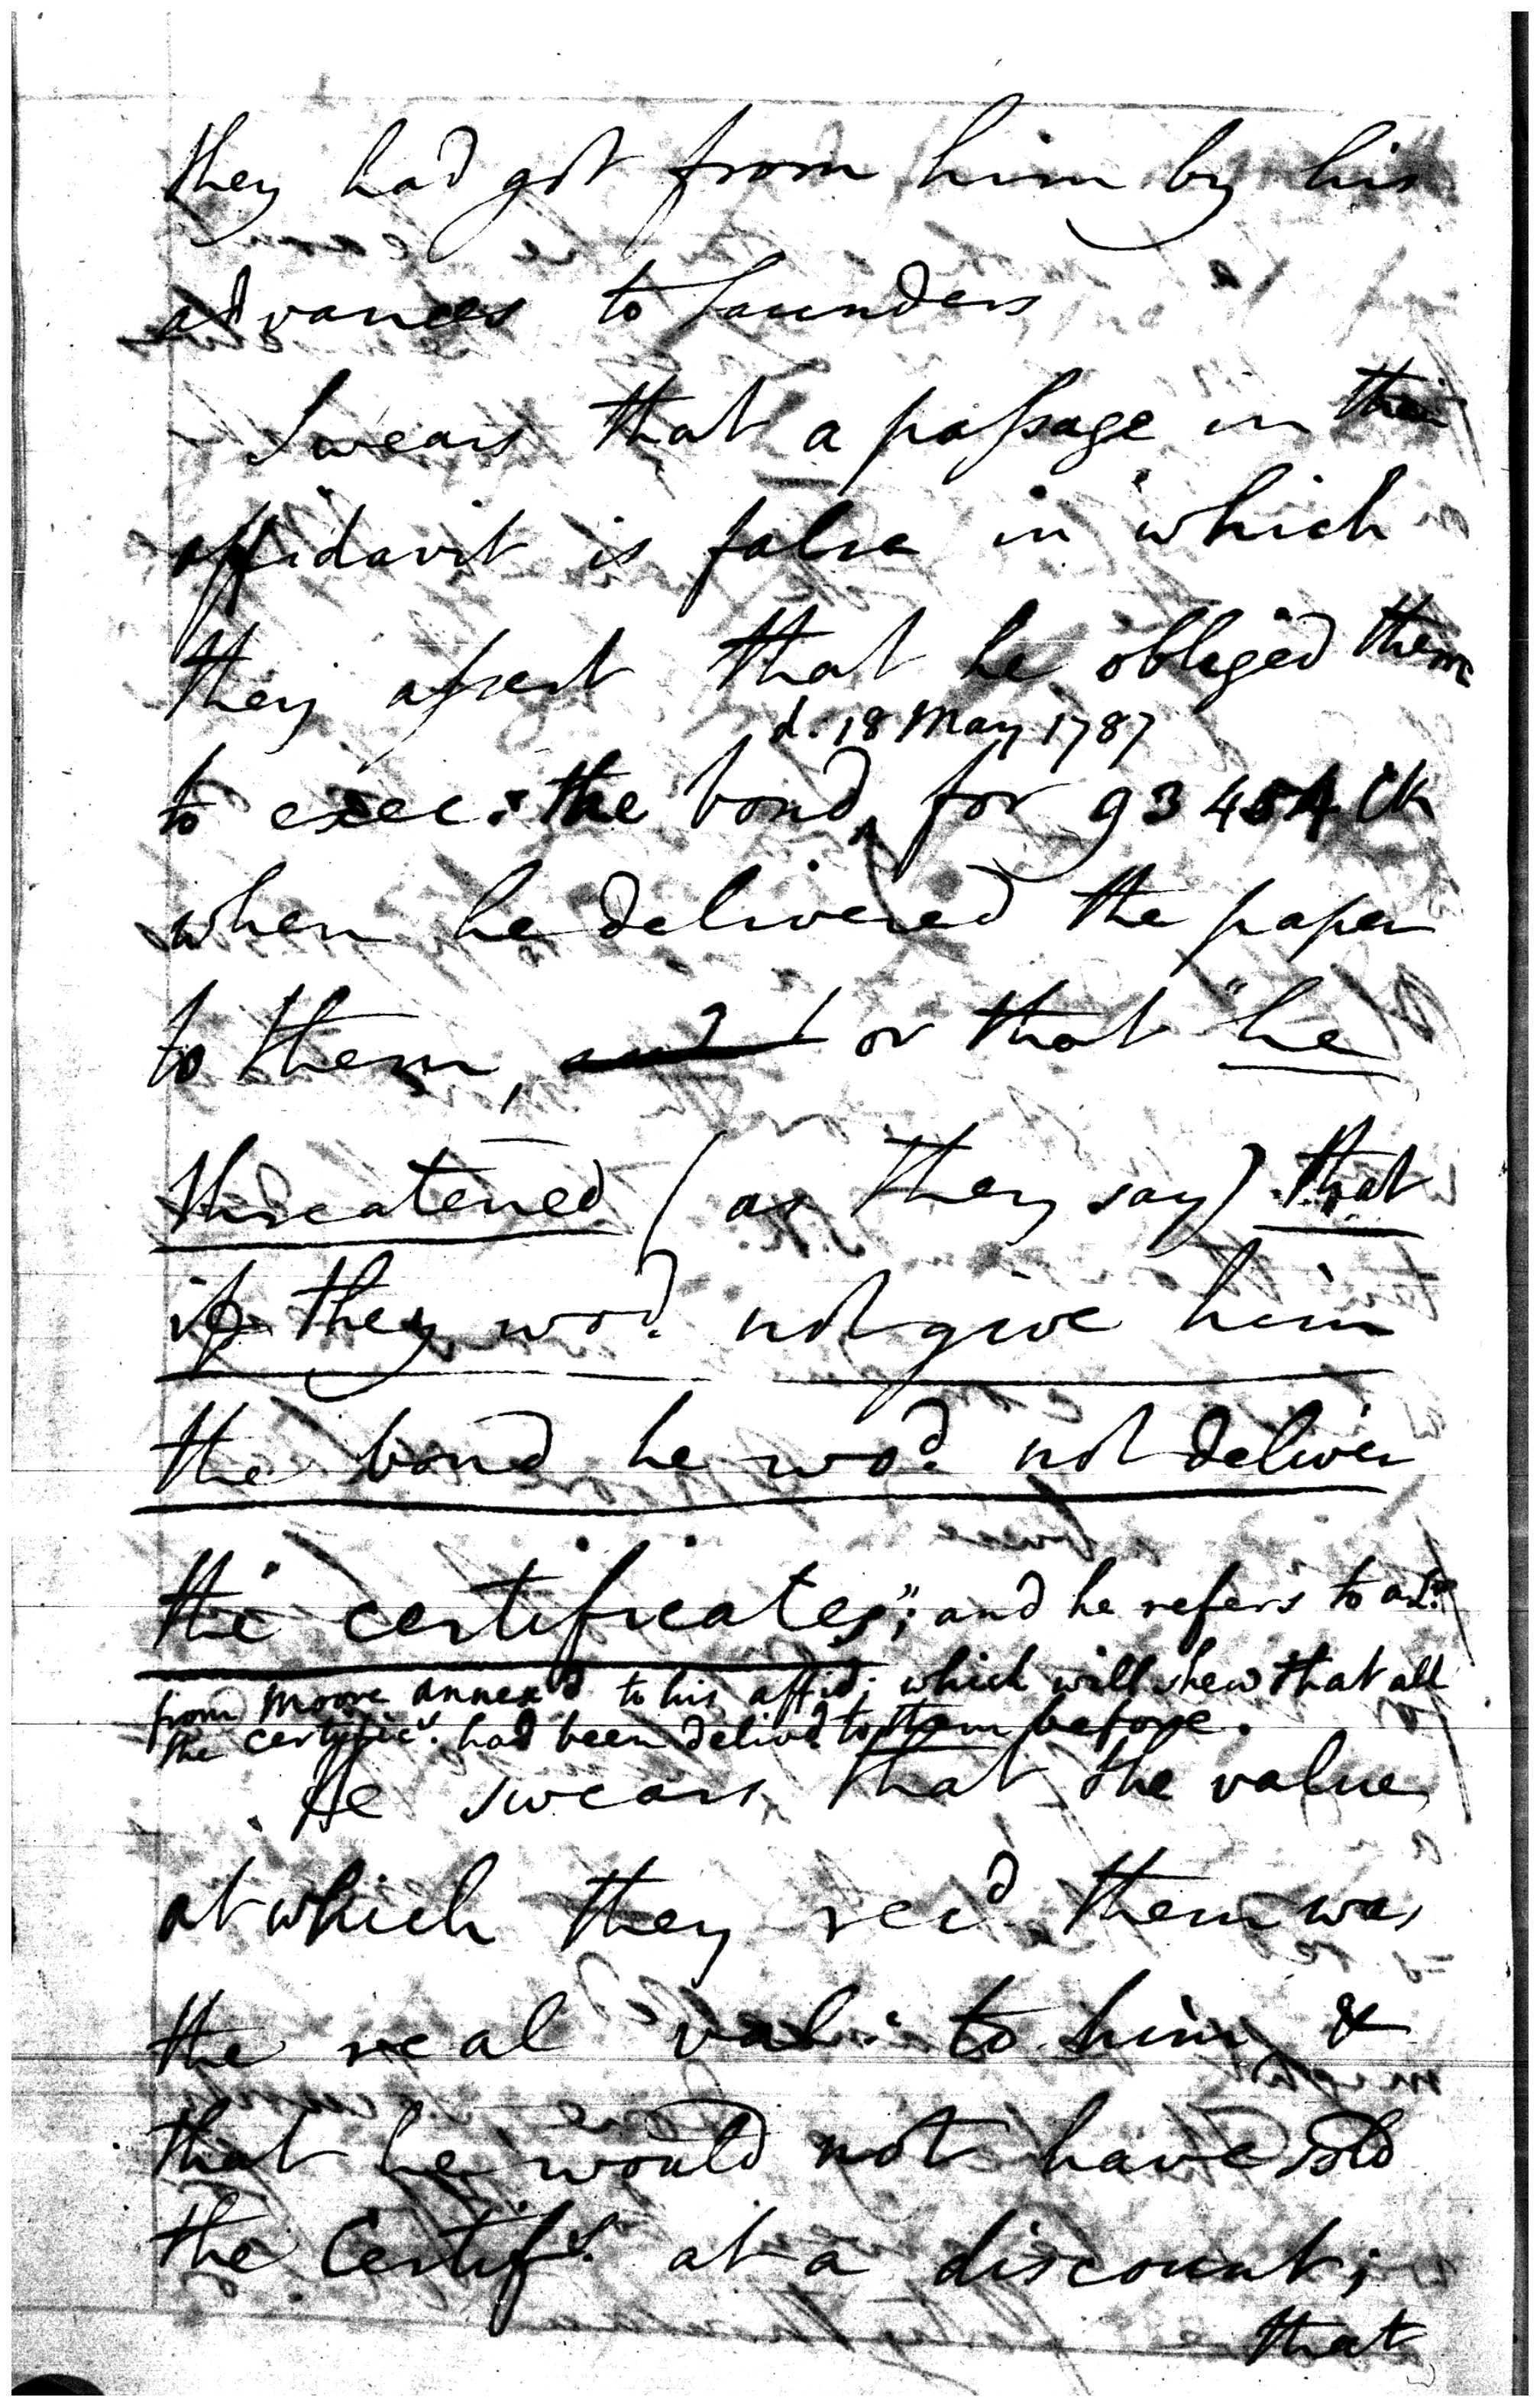 they had got from him by his
advances to Saunders
Swears that a passage in their
affidavit is false in which
they assert that he obliged them
d. 18 May 1787
to exec: the bond for 93454 CR
when he delivered the paper
to them, and or that "he
threatened (as they say) that
if they wod. not give him
the bond he wod. not deliver
the certificates"; and he refers to
from Moore annex'd to his affid; which will shew that all
the certific.s had been delivd to them before.
He swears that the value
at which they recd. them was
the real val: to him &
that he would not have sold
the Certif.s at a discount;
that